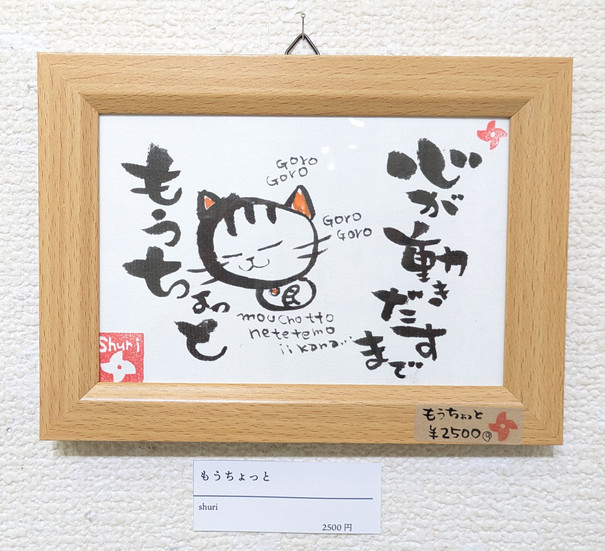 心が
動き
だす
まで
もうちょっと
Goro
Goro
Goro
Goro
mou chotto
netetemo
ii kana...
Shuri
もうちょっと
¥2500
もうちょっと
shuri
2500円